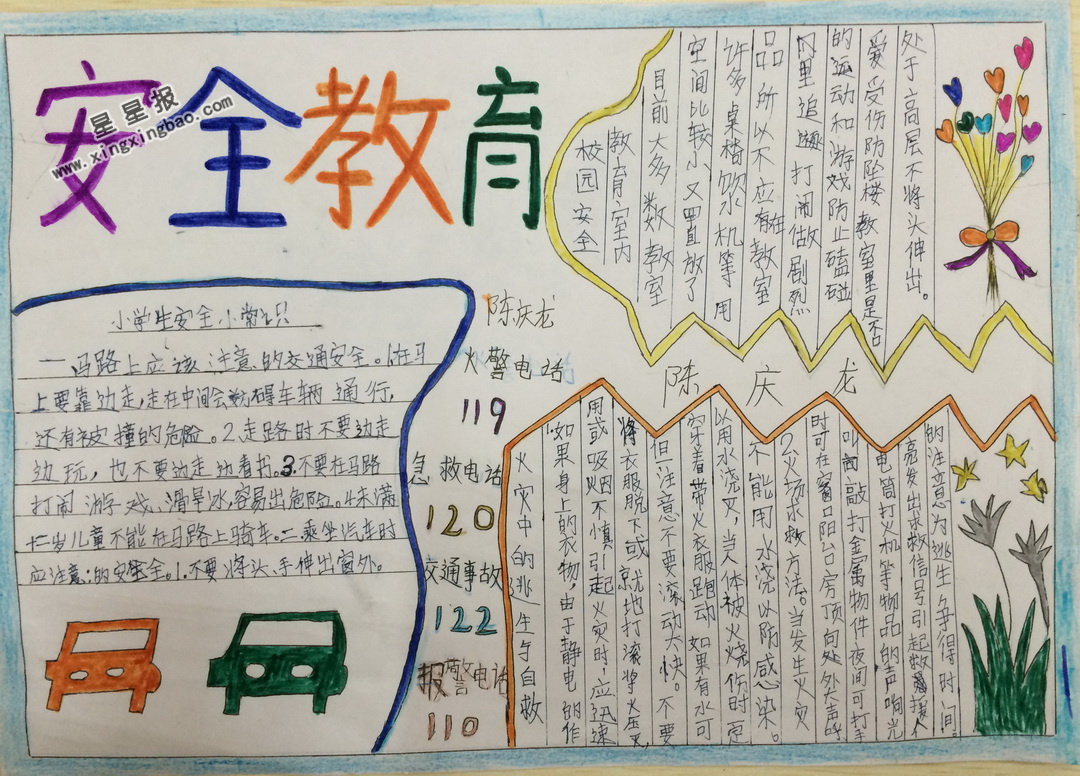 安全教育
星星报
www.xingxingbao.com
校园安全
教育室内
目前大多数教室
空间比较小,又置放了
许多桌椅饮水机等用
品所以不应在教室
里追逐打闹做剧烈
的运动和游戏防止磕碰
爱受伤防坠楼教室里是否
处于高层不将头伸出。
小学生安全小常识
一马路上应该注意的交通安全。1在马
上要靠边走,走在中间会妨碍车辆通行,
还有被撞的危险。2、走路时不要边走
边玩,也不要边走边看书。3不要在马路
打闹游戏、滑旱冰,容易出危险。4未满
十二岁儿童不能在马路上骑车。二乘坐汽车时
应注意:的安全。1.不要将头、手伸出窗外。
陈庆龙
火警电话
119
急救电话
120
交通事故
122
报警电话
110
陈庆龙
火灾中的逃生与自救
如果身上的衣物,由于静电的作
用或吸烟不慎引起火灾时,应迅速
将衣服脱下或就地打滚将火压灭
但注意不要滚动太快。不要
穿着带火衣服跑动如果有水可
以用水浇灭,当人体被火烧伤时定
不能用水浇以防感染。
2火场求救方法。当发生火灾
时可在窗口阳台房顶向处外大声呼
叫敲打金属物件夜间可打手
电筒打火机等物品的声响光
亮发出求救信号引起救援人
的注意为逃生争得时间。